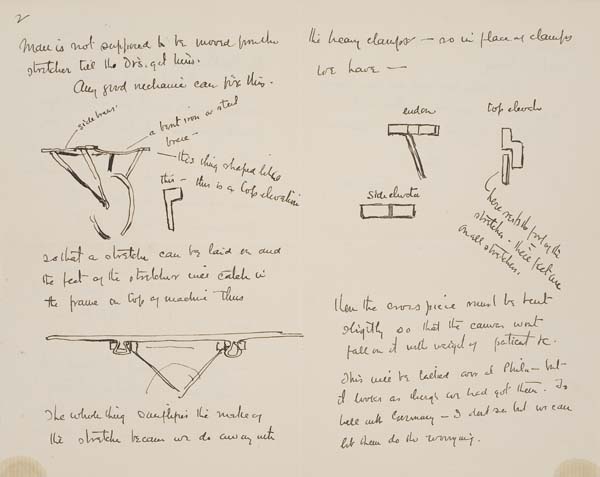 2
Man is not supposed to be moved from the
stretcher till the Drs. get him.
Any good mechanic can fix this.
side brace.
a bent iron or steel
brace —
this thing shaped like
this — this is a top elevation
so that a stretcher can be laid on and
the feet of the stretcher will catch in
the frame on top of machine thus
The whole thing simplifies the make of
the stretcher because we do away with
the heavy clamps — so in place of clamps
we have —
end on
top elevatn
side elevatn
here rests the foot of the
stretcher — these feet are
on all stretchers.
then the cross piece must be bent
slightly so that the canvas wont
fall on it with weight of patient &c.
This will be talked over at Phila — but —
it looks as though we had got them. To
hell with Germany — I dont see but we can
let them do the worrying.